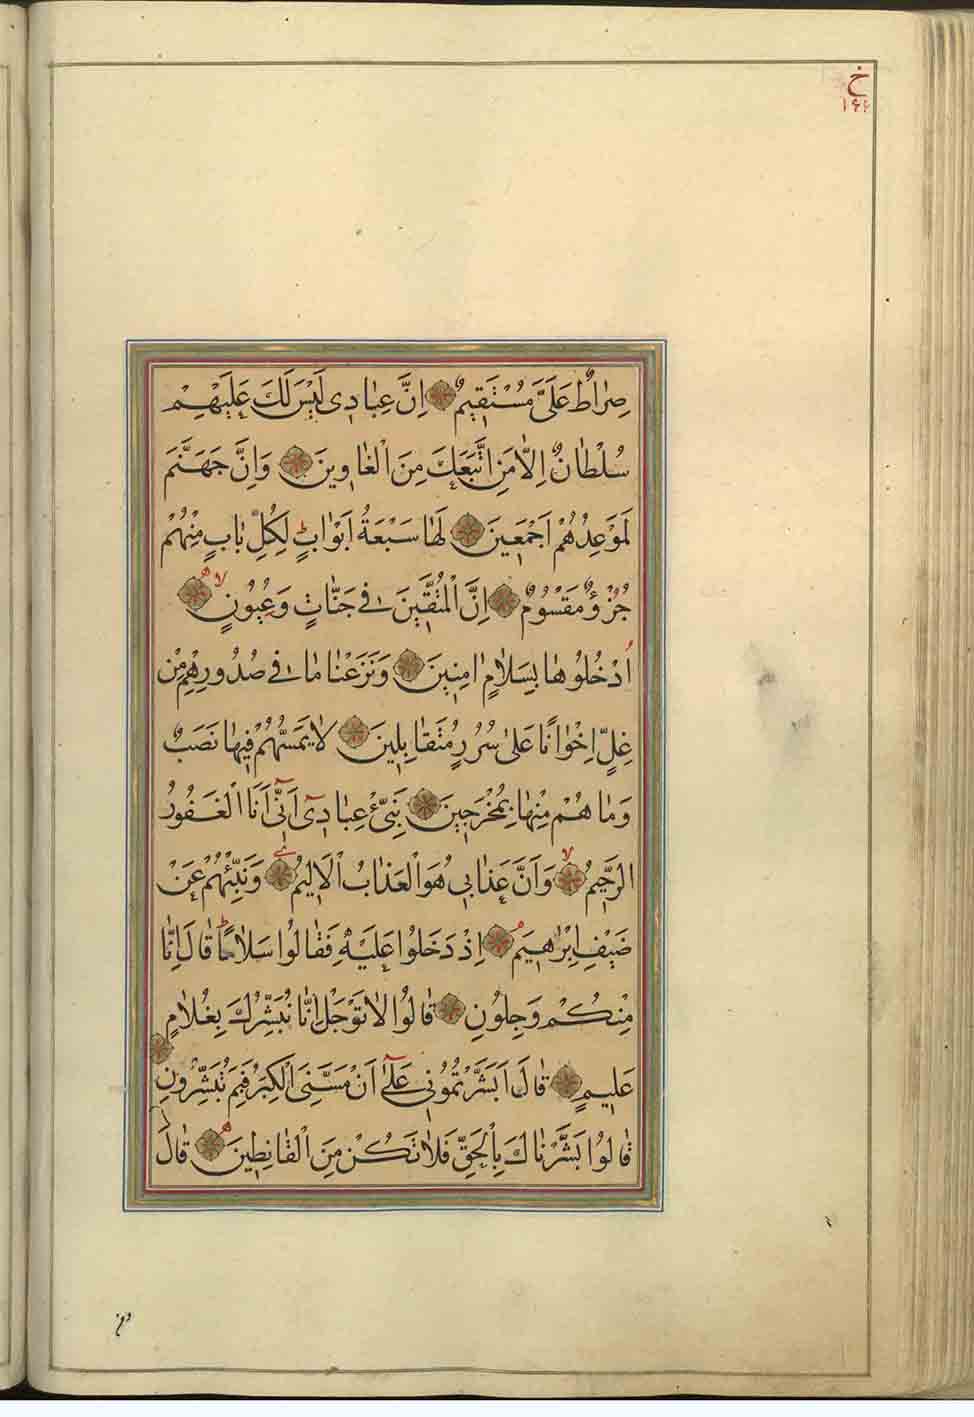 خ
۱۶۶
صِرَاطٌ عَلَيَّ مُسْتَقِيمٌ اِنَّ عِبَادِى لَيْسَ لَكَ عَلَيْهِمْ
سُلْطَانٌ اِلَّا مَنِ اتَّبَعَكَ مِنَ الْغَاوِينَ وَاِنَّ جَهَنَّمَ
لَمَوْعِدُهُمْ اَجْمَعِينَ لَهَا سَبْعَةُ اَبْوَابٍ لِكُلِّ بَابٍ مِنْهُمْ
جُزْؤٌ مَقْسُومٌ اِنَّ الْمُتَّقِينَ فِى جَنَّاتٍ وَعُيُونٍ
اُدْخُلُوهَا بِسَلَامٍ امِنِينَ وَنَزَعْنَا مَا فِى صُدُورِهِمْ مِنْ
غِلٍّ اِخْوَانًا عَلَىٰ سُرُرٍ مُتَقَابِلِينَ لَا يَمَسُّهُمْ فِيهَا نَصَبٌ
وَمَا هُمْ مِنْهَا بِمُخْرَجِينَ نَبِّئْ عِبَادِى اَنِّى اَنَا الْغَفُورُ
الرَّحِيمُ وَاَنَّ عَذَابِى هُوَ الْعَذَابُ الْاَلِيمُ وَنَبِّئْهُمْ عَنْ
ضَيْفِ اِبْرَاهِيمَ اِذْ دَخَلُوا عَلَيْهِ فَقَالُوا سَلَامًا قَالَ اِنَّا
مِنْكُمْ وَجِلُونَ قَالُوا لَا تَوْجَلْ اِنَّا نُبَشِّرُكَ بِغُلَامٍ
عَلِيمٍ قَالَ اَبَشَّرْتُمُونِى عَلَىٰ اَنْ مَسَّنِىَ الْكِبَرُ فَبِمَ تُبَشِّرُونِ
قَالُوا بَشَّرْنَاكَ بِالْحَقِّ فَلَا تَكُنْ مِنَ الْقَانِطِينَ قَالَ